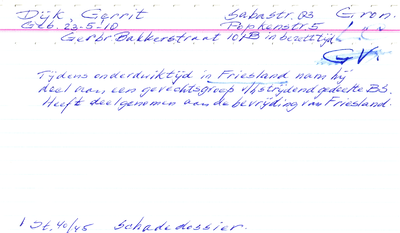 Dijk, Gerrit Sabastr. 83 Gron.
Geb. 23-5-10 Popkenstr. 5 " "
Gerbr. Bakkerstraat 10 B in bezettijd
GV.
Tijdens onderduiktijd in Friesland nam hij
deel aan een gevechtsgroep v/h strijdend gedeelte BS.
Heeft deelgenomen aan de bevrijding van Friesland.
St. 40/45 Schadedossier.